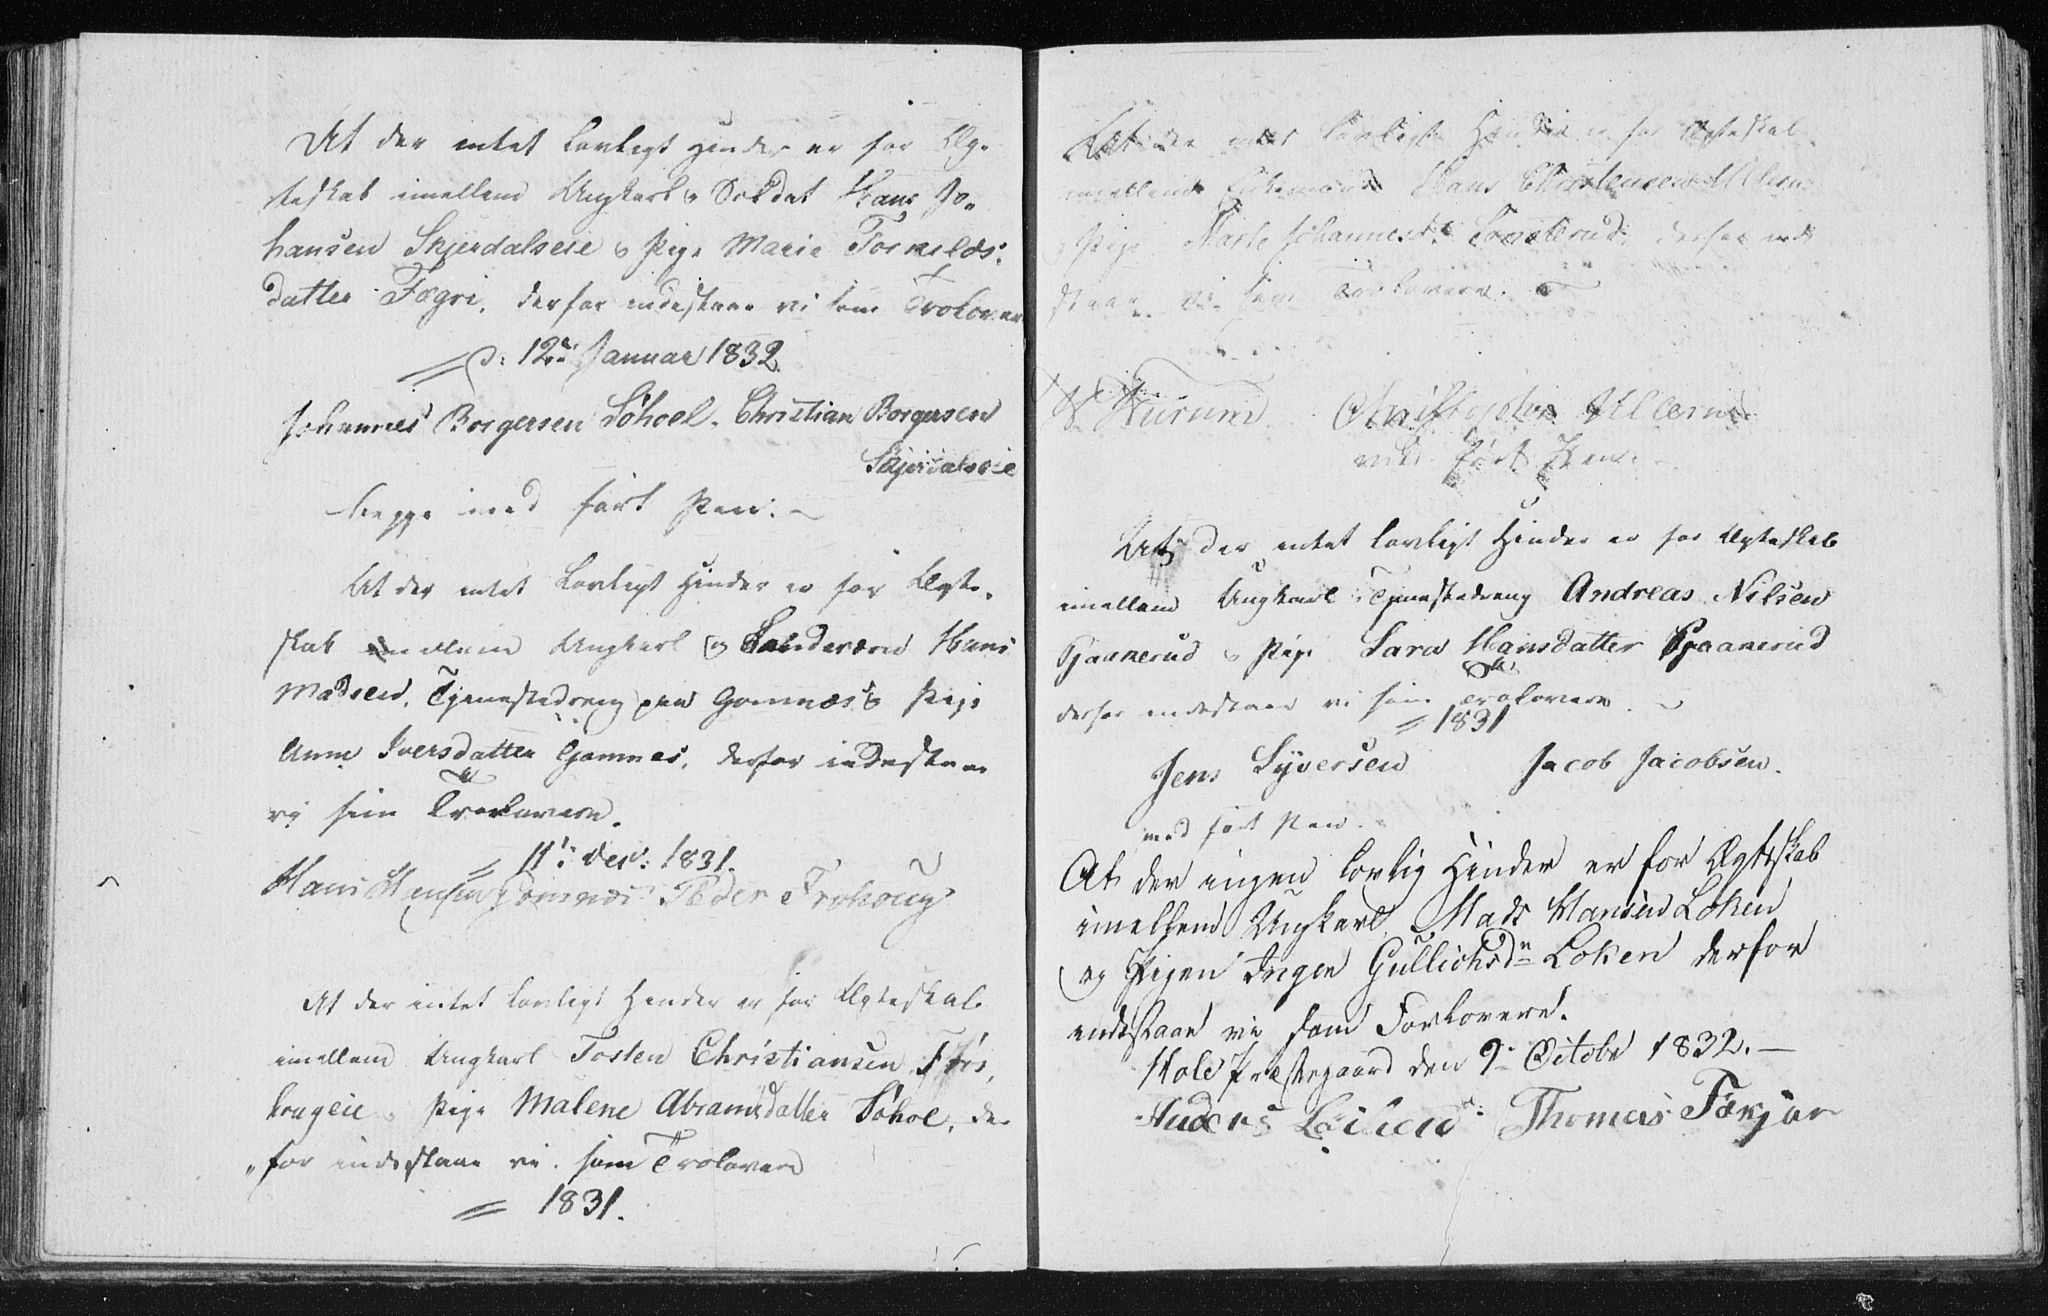 At der intet lovligt Hinder er for Æg-
teskab imellem Ungkarl & Soldat Hans Jo-
hansen Skjerdalseie & Pige Marie Torkilds-
datter Fægri, derfor indestaae vi som Trolovere
12te Januar 1832.
Johannes Borgersen Søhoel. Christian Borgersen
Skjerdalseie
begge med ført Pen.
At der intet Lovligt Hinder er for Ægte-
skab imellem Ungkarl og Landværn Hans
Madsen, Tjenestedreng paa Gomnæs & Pige
Anne Iversdatter Gomnes, derfor indestaae
vi som Trolovere.
11te Decr: 1831.
Hans Hensen Gomnæs Peder Frohoug
At der intet lovligt Hinder er for Ægteskab
imellem Ungkarl Tosten Christiansen
hougeie & Pige Malene Abramsdatter Søhol, der-
for indestaae vi som Trolovere
1831.
At der intet lovligt Hinder er for Ægteskab
imellem Enkemand Hans Christensen Ullern
& Pige Marte Johannesdr. derfor inde-
staae vi som Trolovere.
Hurum Christopher Ullern
med ført Pen.
At der intet lovligt Hinder er for Ægteskab
imellem Ungkarl Tjenestedreng Andreas Nilsen
Gaanerud & Pige Sara Hansdatter Gaanerud
derfor indestaae vi som Trolovere
1831
Jens Syversen Jacob Jacobsen.
med ført Pen.
At der ingen lovlig Hinder er for Ægteskab
imellem Ungkarl Mads Hansen Loken
og Pigen Inger Gullichsdn Loken derfor
indestaar vi som Forlovere.
Hole Præstegaard den 9de October 1832.—
Anders Thomas Færjor